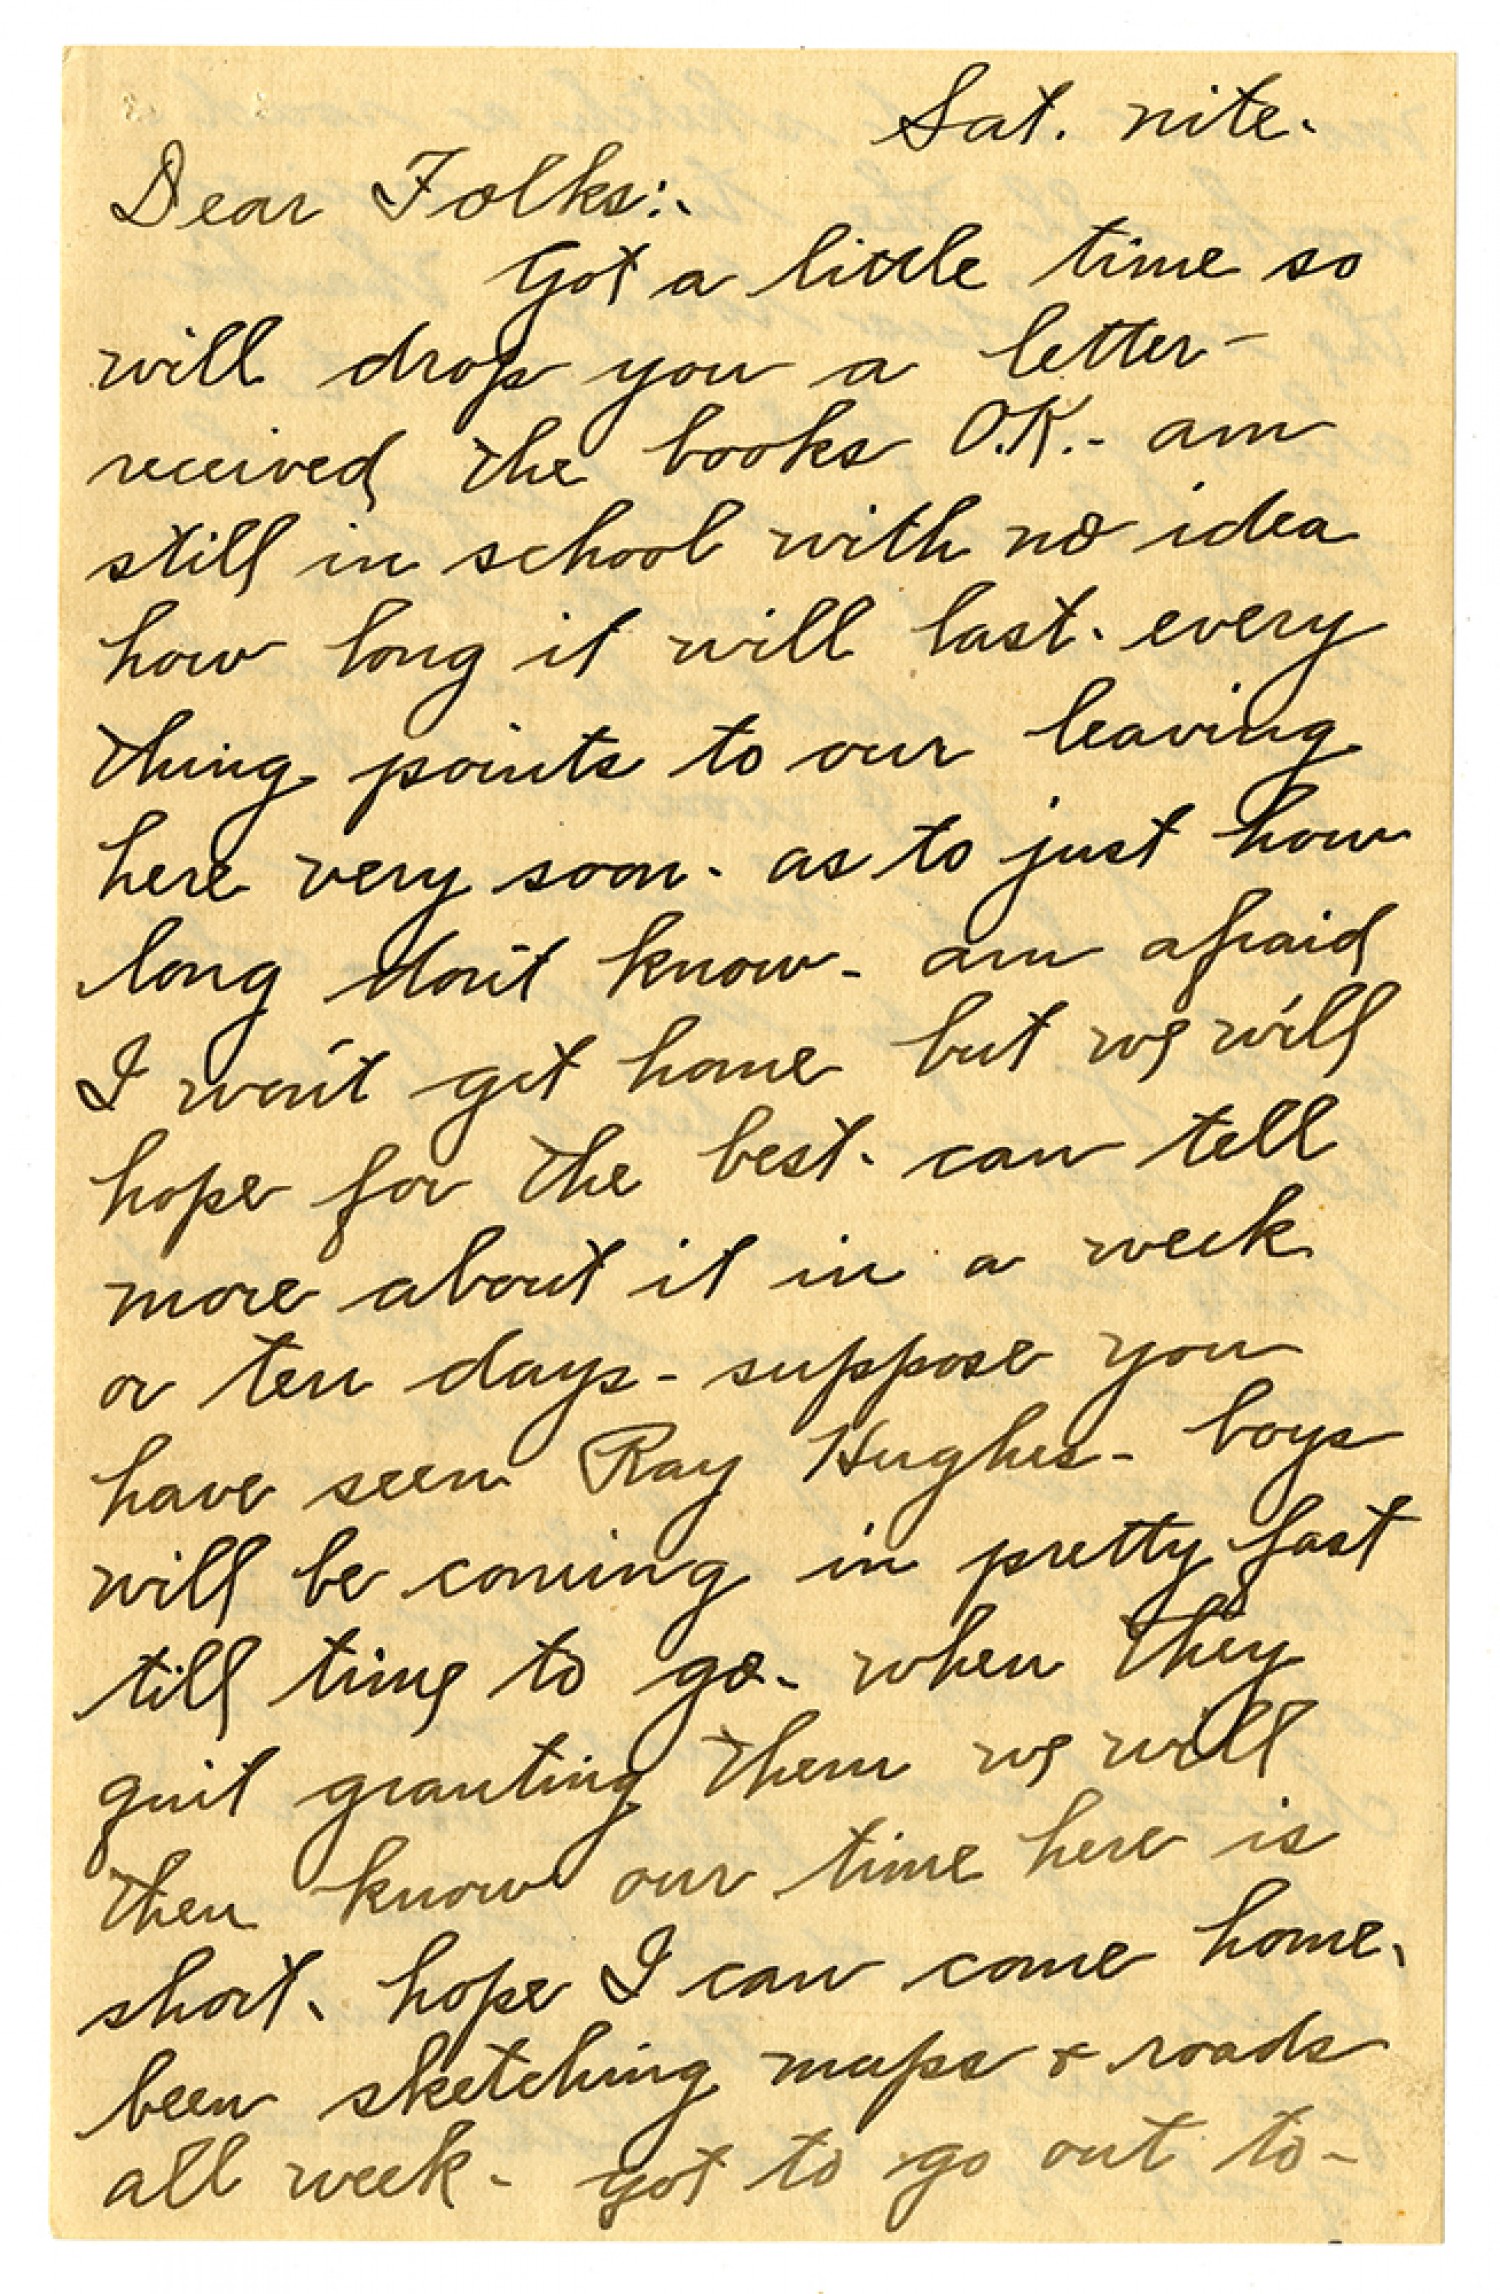 Sat. nite.
Dear Folks:-
Got a little time so
will drop you a letter-
received the books O.K.- am
still in school with no idea
how long it will last. every
thing points to our leaving
here very soon. as to just how
long don't know- am afraid
I won't get home but we will
hope for the best. can tell
more about it in a week
or ten days- suppose you
have seen Ray Hughes- boys
will be coming in pretty fast
till time to go- when they
quit granting them we will
then know our time here is
short. hope I can come home.
been sketching maps & roads
all week- got to go out to-